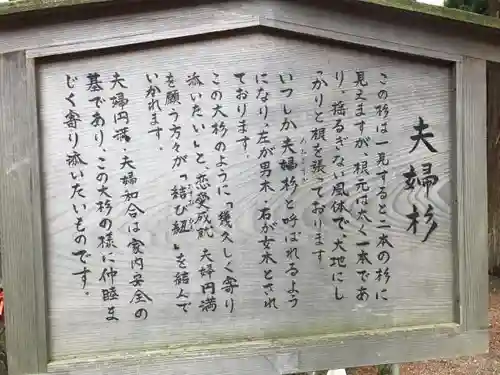 夫婦杉
この杉は一見すると二本の杉に
見えますが根元は太く一本であ
り、揺るぎない風体で大地にし
っかりと根を張っております
いつしか夫婦杉と呼ばれるよう
になり、左が男木・右が女木とされ
ております。
この大杉のように「幾久しく寄り
添いたい」と、恋愛成就 夫婦円満
を願う方々が「結び紐」を結んで
いかれます。
夫婦円満・夫婦和合は家内安全の
基であり、この大杉の様に仲睦ま
じく寄り添いたいものです。